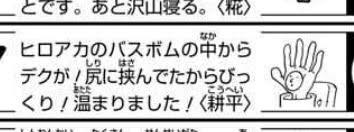 とです。あと沢山寝る。〈糀〉
ヒロアカのバスボムの中から
デクが!尻に挟んでたからびっ
くり!温まりました!〈耕平〉